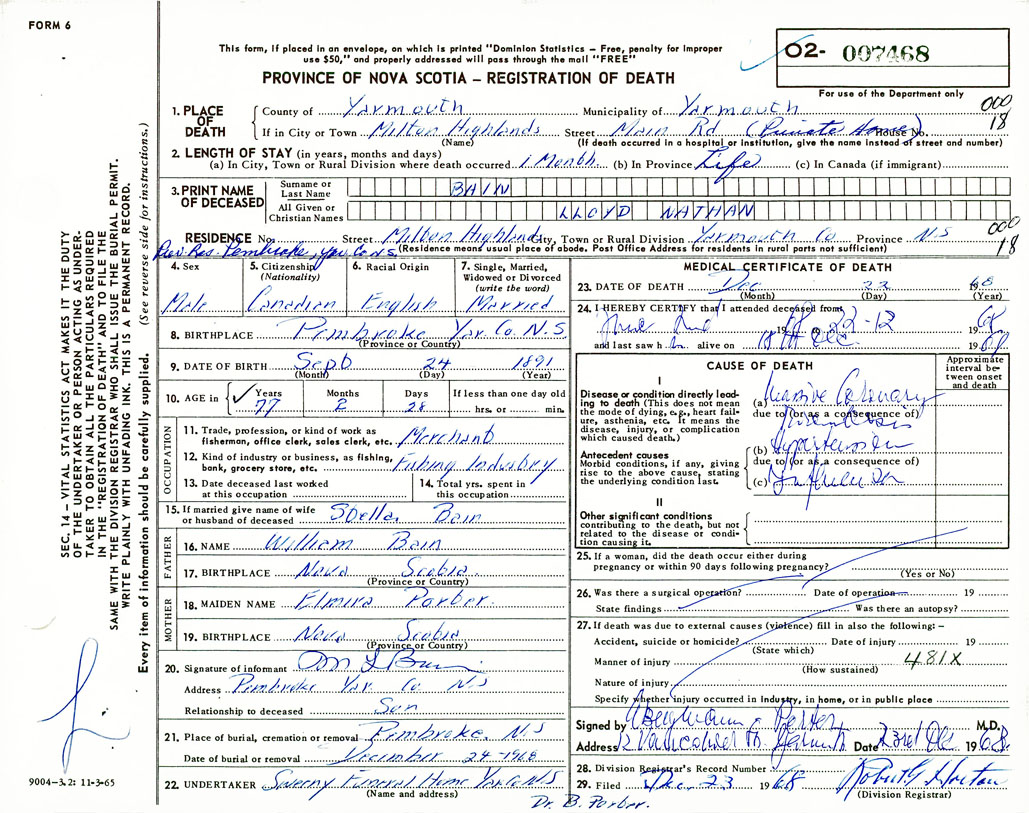 FORM 6
This form, if placed in an envelope, on which is printed "Dominion Statistics – Free, penalty for improper
use $50," and properly addressed will pass through the mail "FREE"
PROVINCE OF NOVA SCOTIA – REGISTRATION OF DEATH
02- 007468
For use of the Department only
SEC. 14 – VITAL STATISTICS ACT MAKES IT THE DUTY
OF THE UNDERTAKER OR PERSON ACTING AS UNDER-
TAKER TO OBTAIN ALL THE PARTICULARS REQUIRED
IN THE "REGISTRATION OF DEATH" AND TO FILE THE
SAME WITH THE DIVISION REGISTRAR WHO SHALL ISSUE THE BURIAL PERMIT.
WRITE PLAINLY WITH UNFADING INK. THIS IS A PERMANENT RECORD.
Every item of information should be carefully supplied. (See reverse side for instructions.)
1. PLACE OF DEATH County of Yarmouth Municipality of Yarmouth 000
If in City or Town Milton Highlands Street Main Rd (Private House) House No. 18
(Name) (If death occurred in a hospital or institution, give the name instead of street and number)
2. LENGTH OF STAY (in years, months and days)
(a) In City, Town or Rural Division where death occurred 1 Month (b) In Province Life (c) In Canada (if immigrant)
3. PRINT NAME OF DECEASED Surname or Last Name BAIN
All Given or Christian Names LLOYD NATHAN
RESIDENCE No. Street Milton Highlands City, Town or Rural Division Yarmouth Co Province N.S 000
Prev. Res. Pembroke, Yar. Co N.S. (Residence means usual place of abode. Post Office Address for residents in rural parts not sufficient) 18
4. Sex 5. Citizenship (Nationality) 6. Racial Origin 7. Single, Married, Widowed or Divorced (write the word)
Male Canadian English Married
8. BIRTHPLACE Pembroke Yar. Co. N.S
(Province or Country)
9. DATE OF BIRTH Sept 24 1891
(Month) (Day) (Year)
10. AGE in Years Months Days If less than one day old
77 2 28 hrs. or min.
OCCUPATION
11. Trade, profession, or kind of work as
fisherman, office clerk, sales clerk, etc. Merchant
12. Kind of industry or business, as fishing,
bank, grocery store, etc. Fishing Industry
13. Date deceased last worked
at this occupation
14. Total yrs. spent in
this occupation
15. If married give name of wife
or husband of deceased Stella Bain
FATHER
16. NAME William Bain
17. BIRTHPLACE Nova Scotia.
(Province or Country)
MOTHER
18. MAIDEN NAME Elmira Porter.
19. BIRTHPLACE Nova Scotia
(Province or Country)
20. Signature of informant
Address Pembroke Yar. Co. N.S
Relationship to deceased Son
21. Place of burial, cremation or removal Pembroke. N.S
Date of burial or removal December 24-1968
22. UNDERTAKER Sweeny Funeral Home Yar. Co N.S
(Name and address)
Dr. B. Porter.
9004–3.2: 11-3-65
MEDICAL CERTIFICATE OF DEATH
23. DATE OF DEATH Dec 22 68
(Month) (Day) (Year)
24. I HEREBY CERTIFY that I attended deceased from
19 68 to 22-12 1968
and last saw h m alive on 18th Dec 1968
CAUSE OF DEATH
Approximate interval between onset and death
I
Disease or condition directly lead-
ing to death (This does not mean
the mode of dying, e.g., heart fail-
ure, asthenia, etc. It means the
disease, injury, or complication
which caused death.)
(a) Massive Coronary
due to (or as a consequence of)
Thrombosis
Antecedent causes
Morbid conditions, if any, giving
rise to the above cause, stating
the underlying condition last.
(b) Hypertension
due to (or as a consequence of)
(c)
II
Other significant conditions
contributing to the death, but not
related to the disease or condi-
tion causing it.
25. If a woman, did the death occur either during
pregnancy or within 90 days following pregnancy?
(Yes or No)
26. Was there a surgical operation? Date of operation 19
State findings Was there an autopsy?
27. If death was due to external causes (violence) fill in also the following: –
Accident, suicide or homicide? Date of injury 19
(State which)
Manner of injury 481X
(How sustained)
Nature of injury
Specify whether injury occurred in Industry, in home, or in public place
Signed by M.D.
Address 2 Vancouver St. Yarmouth Date 23rd Dec 1968
28. Division Registrar's Record Number
29. Filed Dec. 23 1968 Robert G Horton
(Division Registrar)